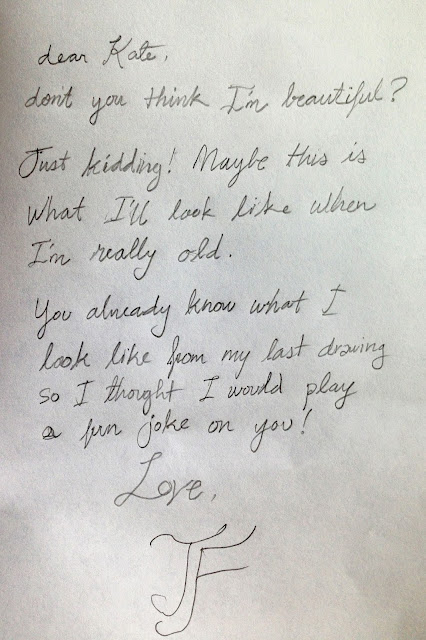 dear Kate,
don't you think I'm beautiful?
Just kidding! Maybe this is
what I'll look like when
I'm really old.
You already know what I
look like from my last drawing
so I thought I would play
a fun joke on you!
Love,
TF